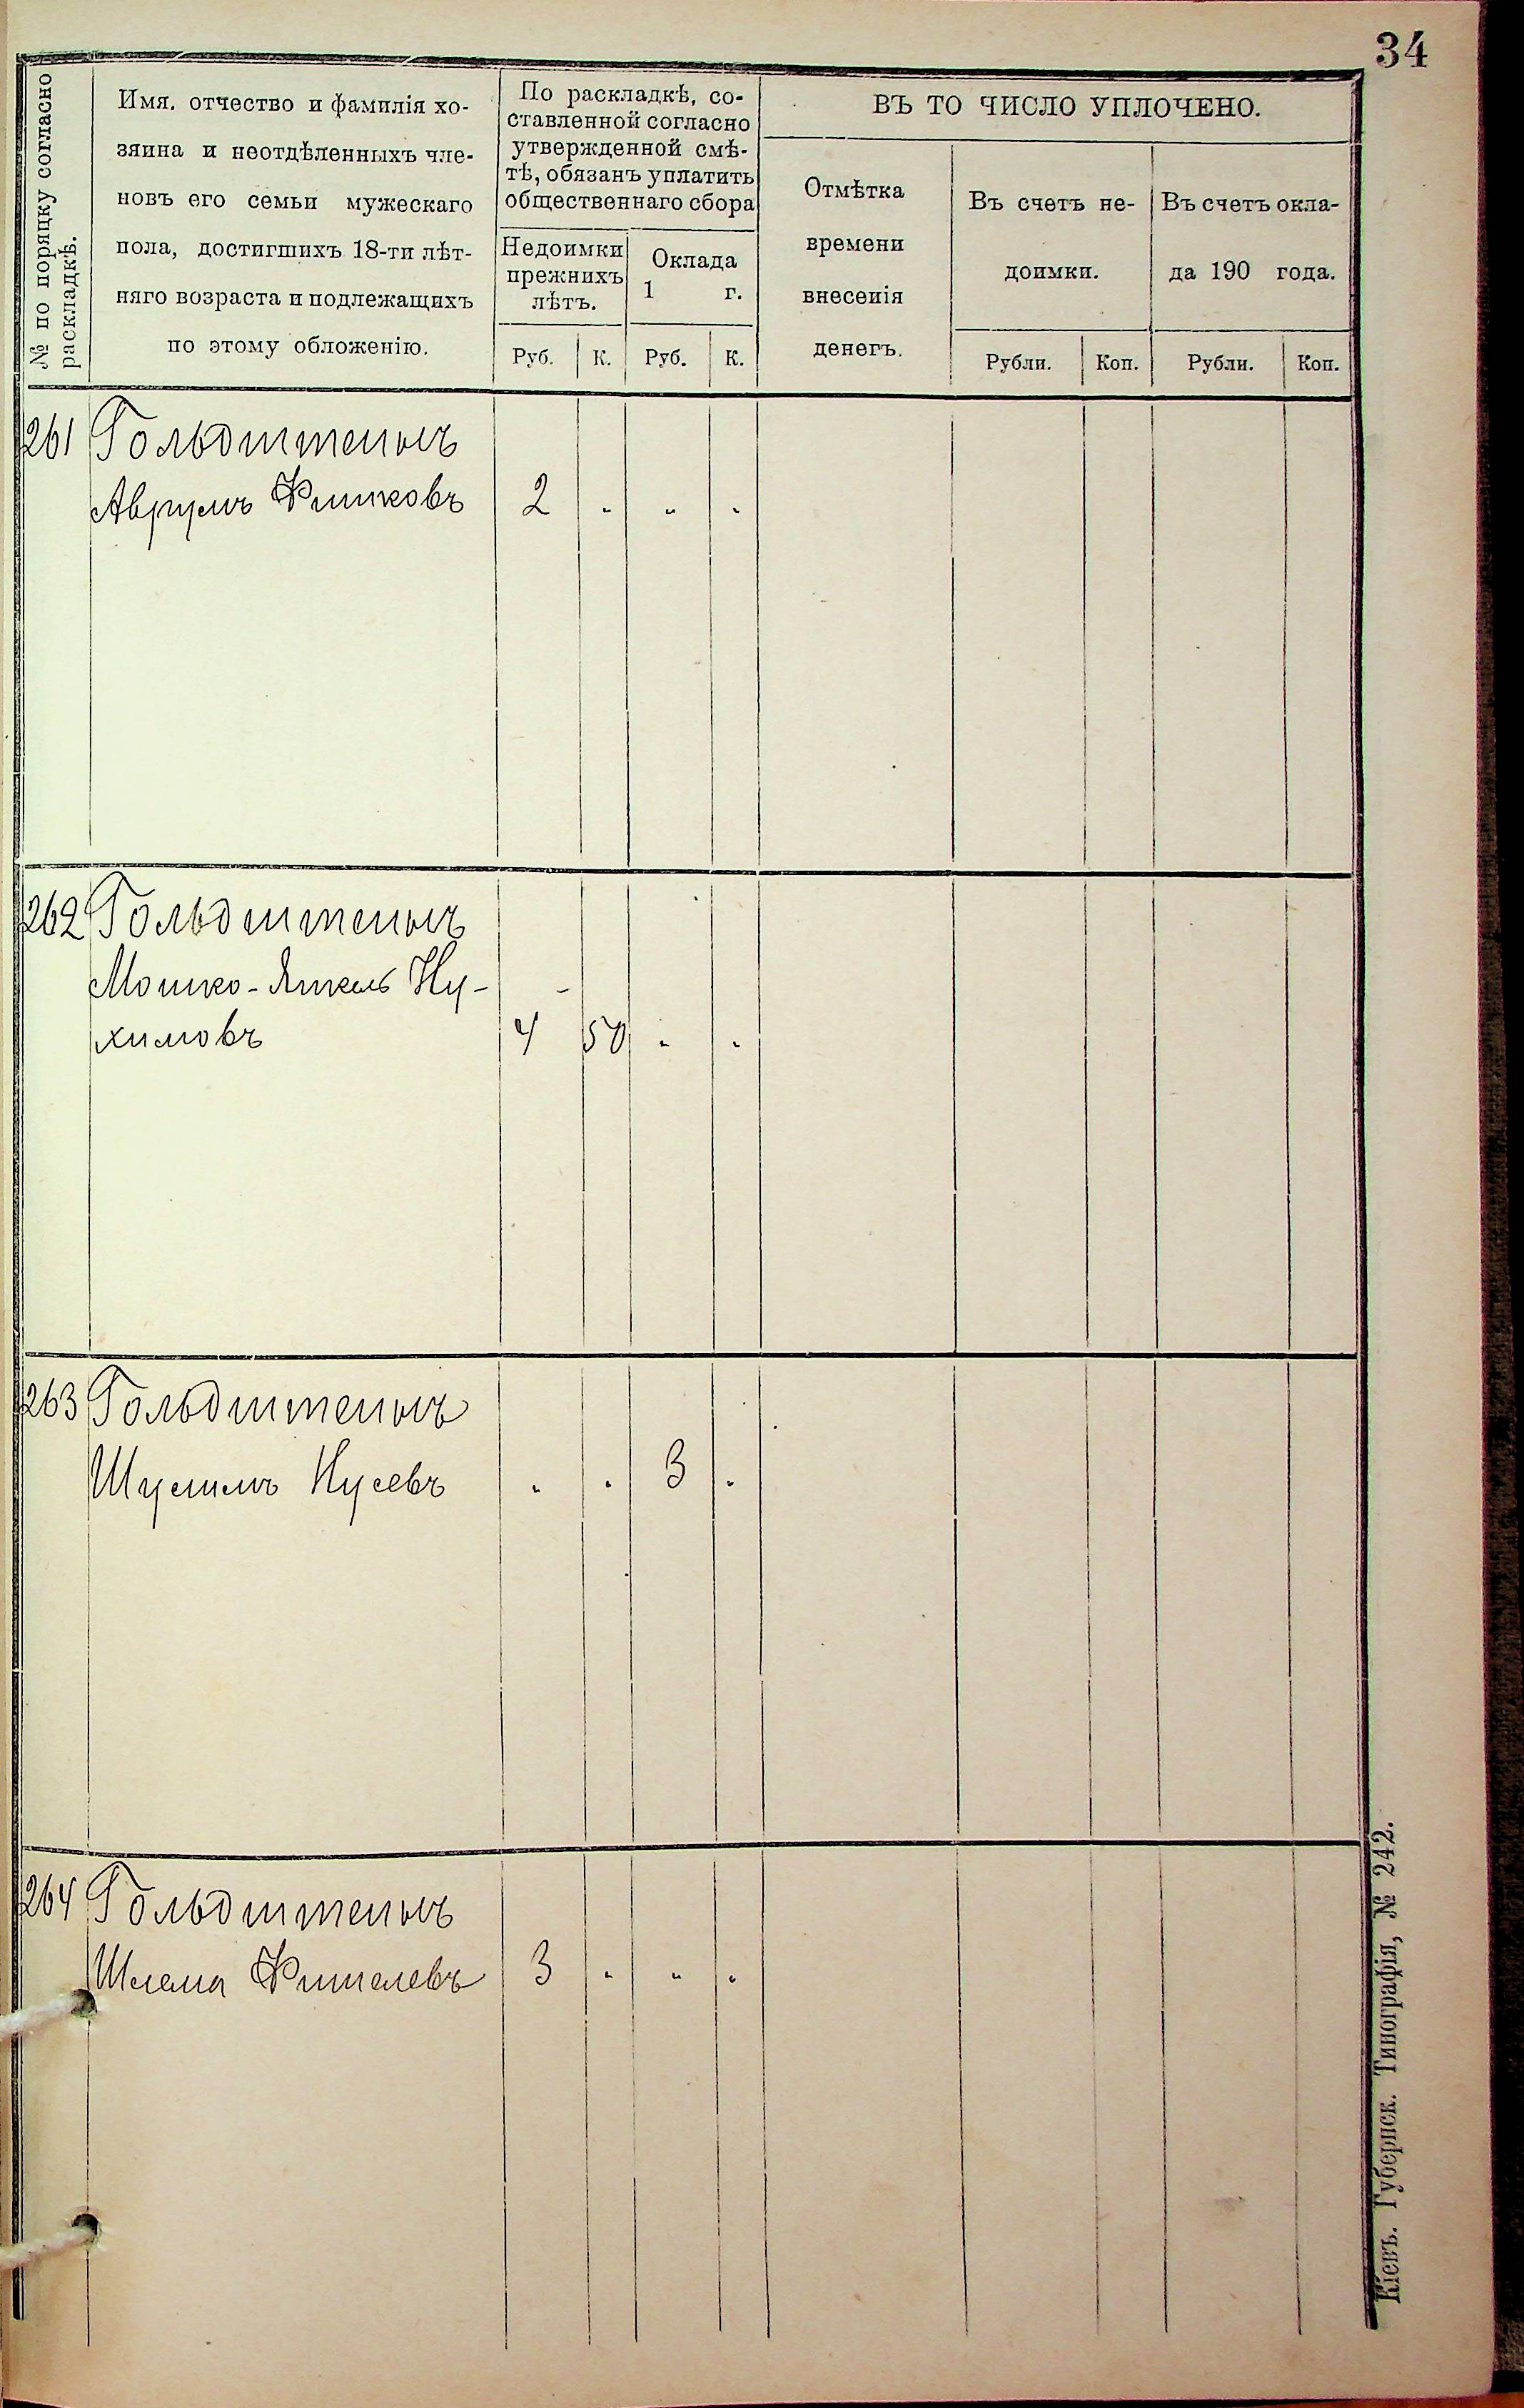 34
№ по порядку согласно
раскладкѣ.
Имя, отчество и фамилія хо-
зяина и неотдѣленныхъ чле-
новъ его семьи мужескаго
пола, достигшихъ 18-ти лѣт-
няго возраста и подлежащихъ
по этому обложенію.
По раскладкѣ, со-
ставленной согласно
утвержденной смѣ-
тѣ, обязанъ уплатить
общественнаго сбора
Недоимки
прежнихъ
лѣтъ.
Оклада
1 г.
Руб. К. Руб. К.
ВЪ ТО ЧИСЛО УПЛОЧЕНО.
Отмѣтка
времени
внесенія
денегъ.
Въ счетъ не-
доимки.
Въ счетъ окла-
да 190 года.
Рубли. Коп. Рубли. Коп.
261 Гольдштейнъ
Аврумъ Фишковъ 2 " " "
262 Гольдштейнъ
Мошко-Янкель Ну-
химовъ 4 50 " "
263 Гольдштейнъ
Шулимъ Нусевъ " " 3 "
264 Гольдштейнъ
Шлема Фишелевъ 3 " " "
Кіевъ. Губернск. Типографія, № 242.